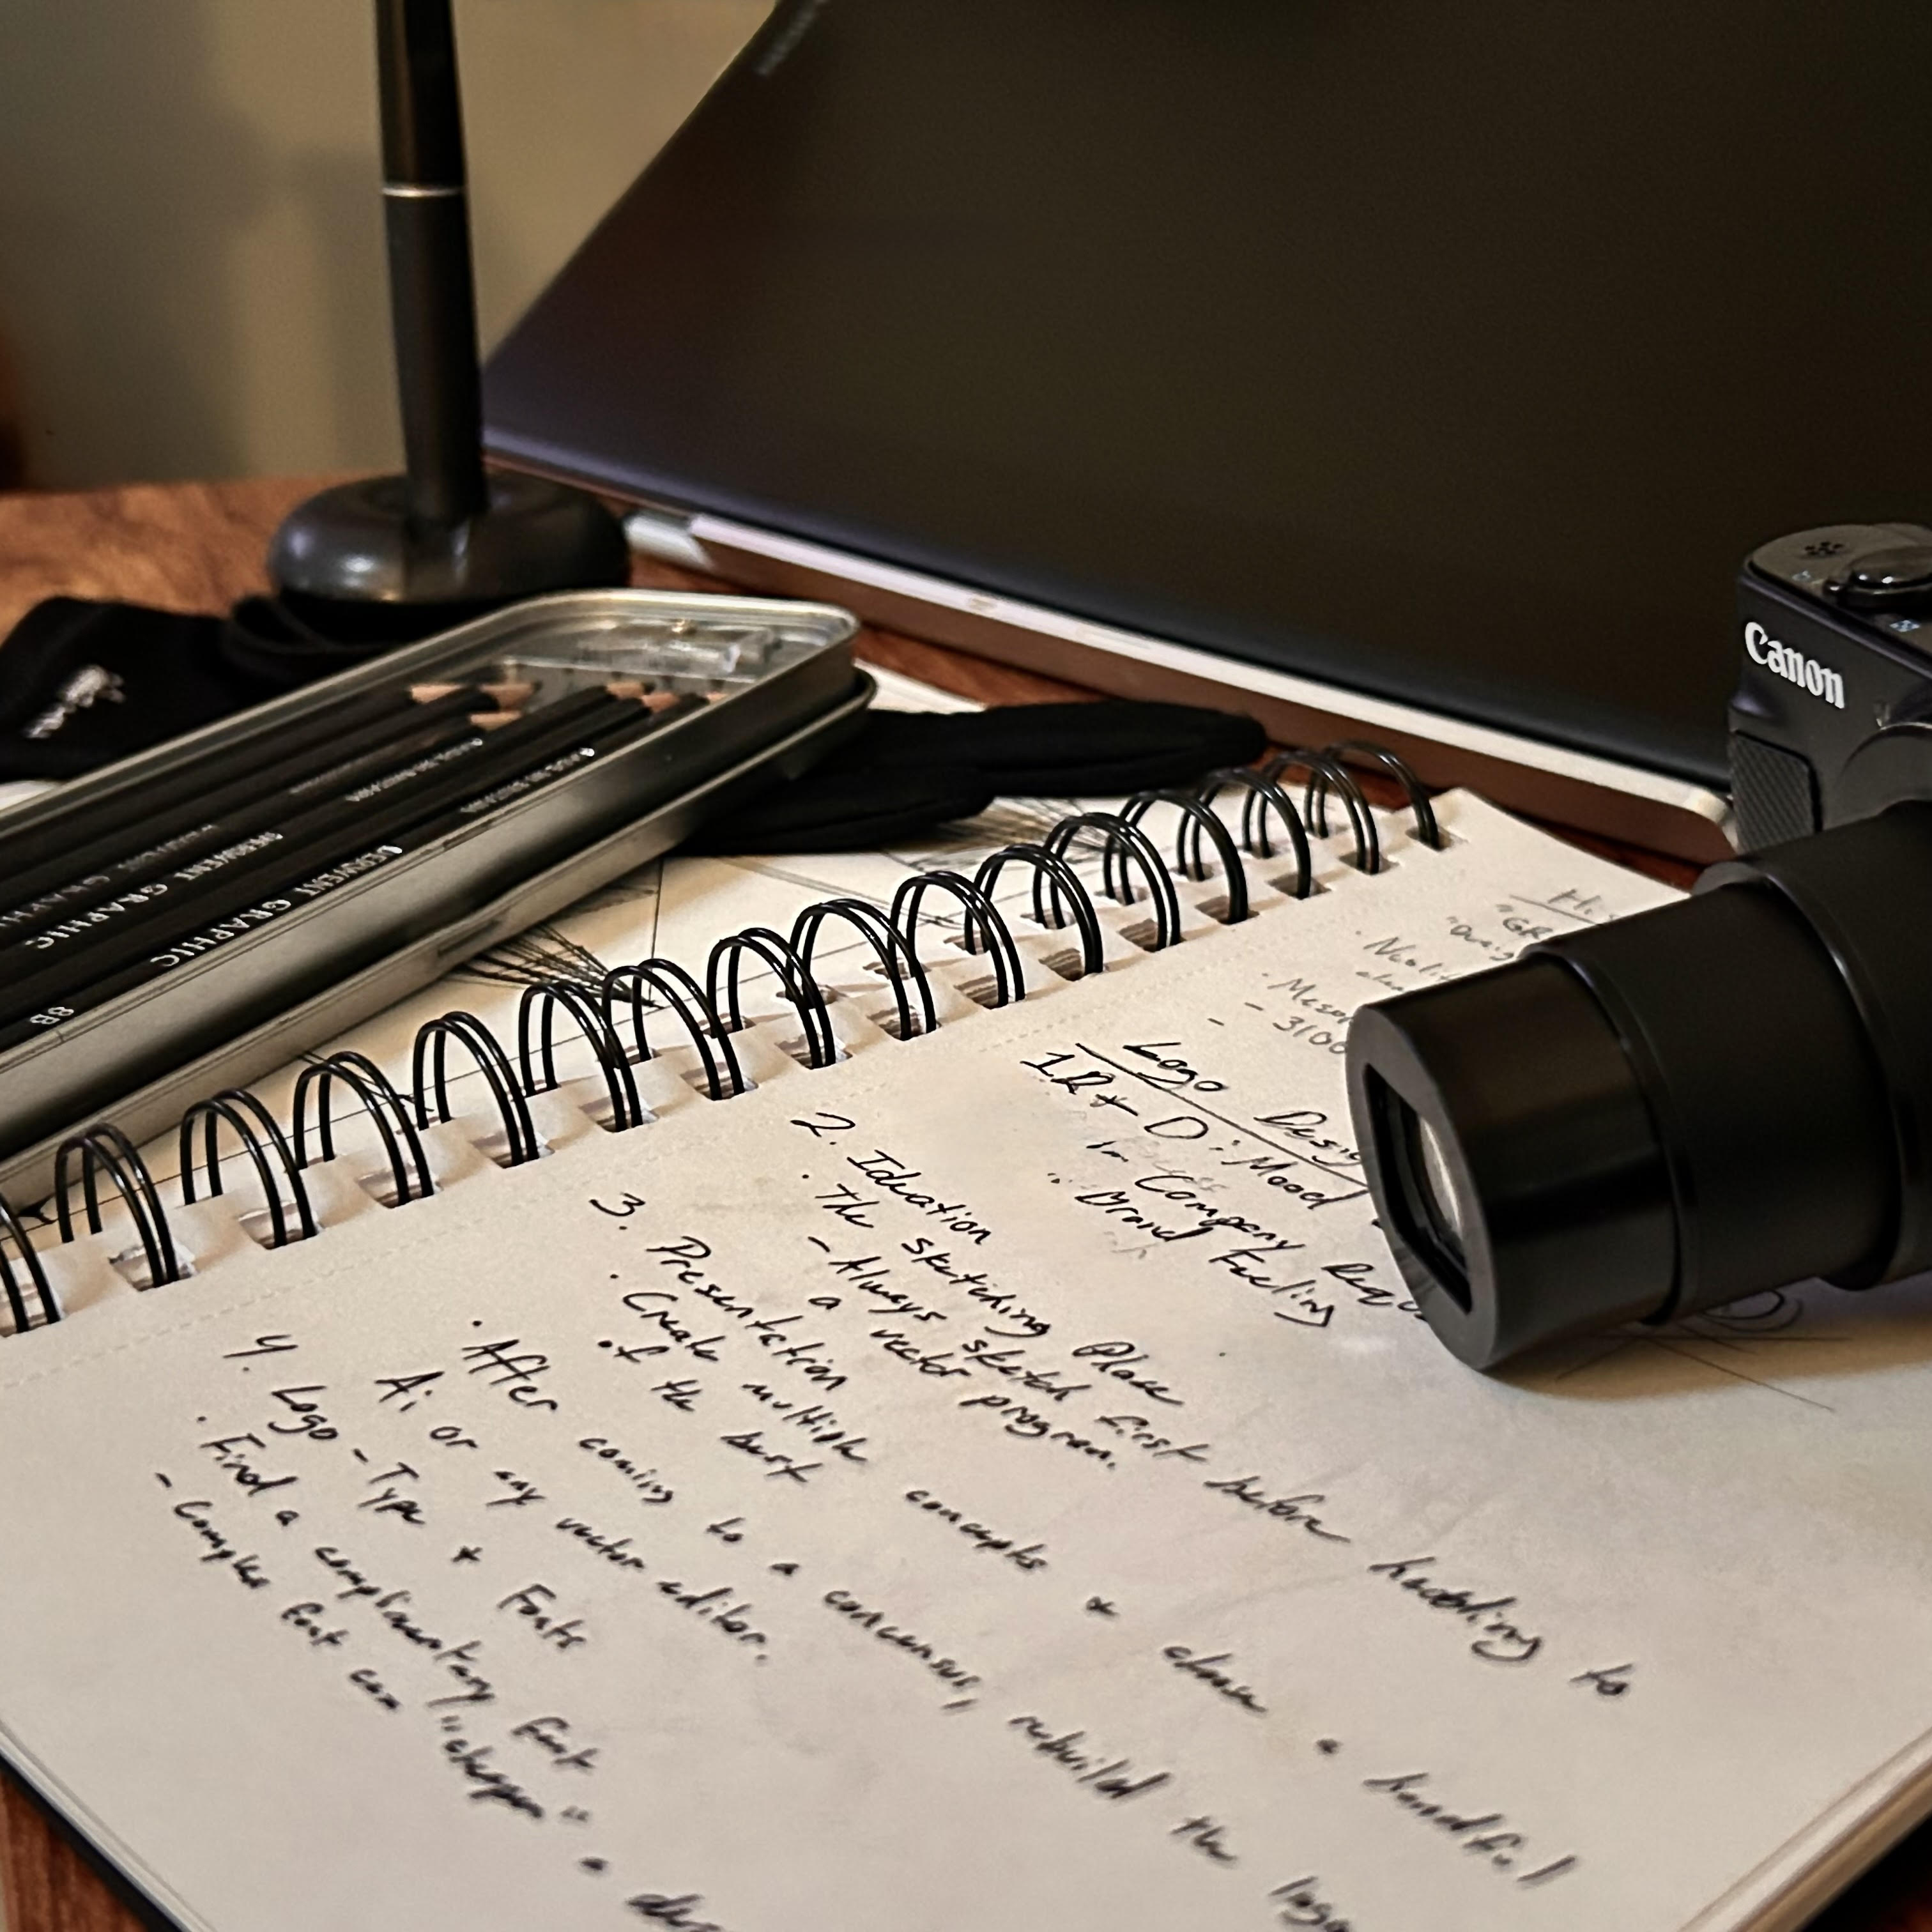 Canon
DERWENT GRAPHIC
DERWENT GRAPHIC
GRAPHIC
8B
- 3100
Logo Desig
1. R + D: Mood
Company Req
Brand Feeling
2. Ideation
· The sketching Phase
- Always sketch first before heading to
a vector program.
3. Presentation
· Create multiple concepts + chose a handful
of the best
· After coming to a concensus, rebuild the logo
Ai or any vector editor.
4. Logo - Type + Fonts
· Find a complimentary font
- Complex font can "cheapen" a